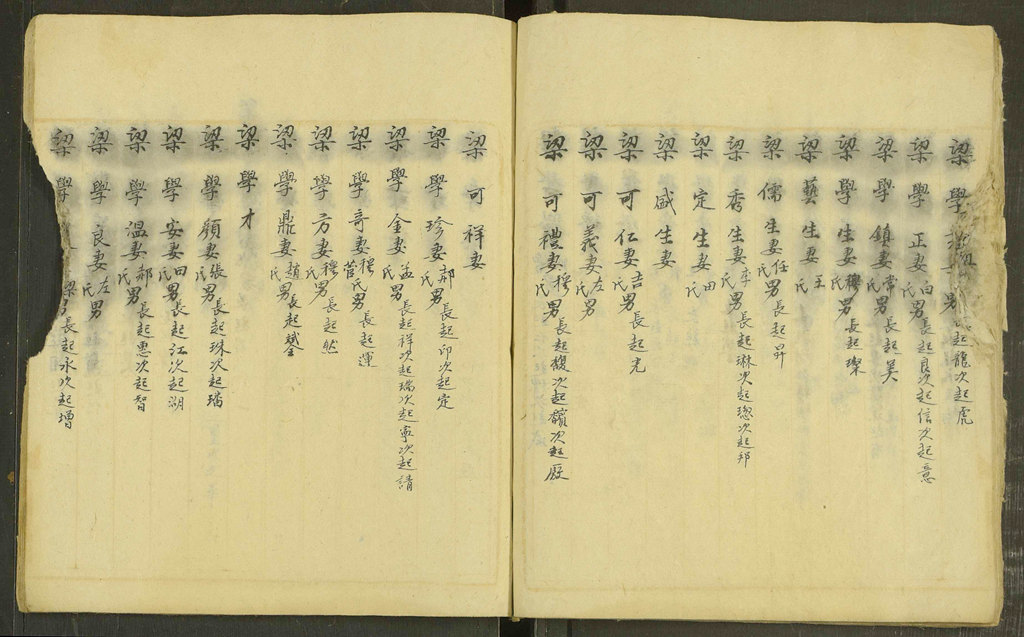 梁學 男長起龍次起虎
梁學正妻白氏男長起良次起信次起意
梁學鎮妻常氏男長起美
梁學生妻穆氏男長起璨
梁藝生妻王氏
梁儒生妻任氏男長起昇
梁秀生妻李氏男長起琳次起璁次起邦
梁定生妻田氏
梁咸生妻
梁可仁妻吉氏男長起光
梁可義妻左氏男
梁可禮妻穆氏男長起馥次起馪次起
梁可祥妻
梁學珍妻郝氏男長起印次起定
梁學金妻孟氏男長起祥次起瑞次起寧次起請
梁學奇妻穆菅氏男長起運
梁學方妻穆氏男長起然
梁學鼎妻趙氏男長起鰲
梁學才
梁學顏妻張氏男長起珠次起璠
梁學安妻田氏男長起江次起湖
梁學溫妻郝氏男長起惠次起智
梁學良妻左氏男
梁學 梁男長起永次起增